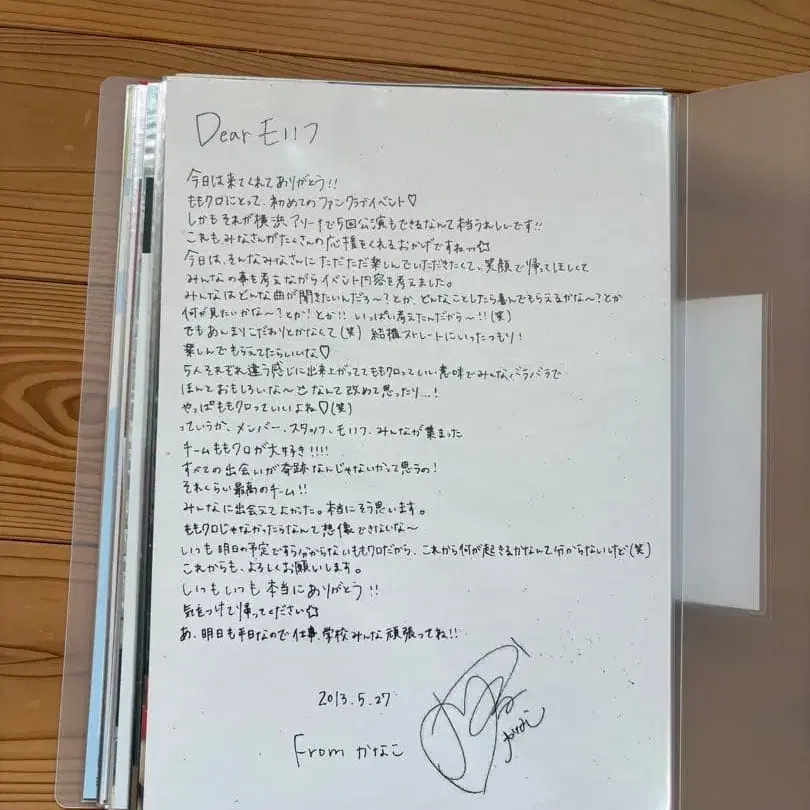 Dear モノノフ
今日は来てくれてありがとう!!
ももクロにとって、初めてのファンクラブイベント♡
しかもそれが横浜アリーナで5回公演もできるなんて本当うれしいです!!
これもみなさんがたくさんの応援をくれるおかげですねっ☆
今日は、そんなみなさんにただただ楽しんでいただきたくて、笑顔で帰ってほしくて
みんなの事を考えながらイベント内容を考えました。
みんなはどんな曲が聞きたいんだろ〜?とか、どんなことしたら喜んでもらえるかな〜?とか
何が見たいかな〜?とか!とか!! いっぱい考えたんだから〜!!(笑)
でもあんまりこだわりとかなくて(笑) 結構ストレートにいったつもり!
楽しんでもらえてたらいいな♡
5人それぞれ違う感じに出来上がっててももクロっていい意味でみんなバラバラで
ほんとおもしろいな〜 なんて改めて思ったり...!
やっぱももクロっていいよね♡(笑)
っていうか、メンバー、スタッフ、モノノフ、みんなが集まった
チームももクロが大好き!!!!
すべての出会いが奇跡なんじゃないかって思うの!
それくらい最高のチーム!!
みんなに出会えてよかった。本当にそう思います。
ももクロじゃなかったらなんて想像できないな〜
いつも明日の予定ですら分からないももクロだから、これから何が起きるかなんて分からないけど(笑)
これからも、よろしくお願いします。
いつもいつも本当にありがとう!!
気をつけて帰ってください☆
あ、明日も平日なので仕事、学校みんな頑張ってね!!
2013.5.27
From かなこ